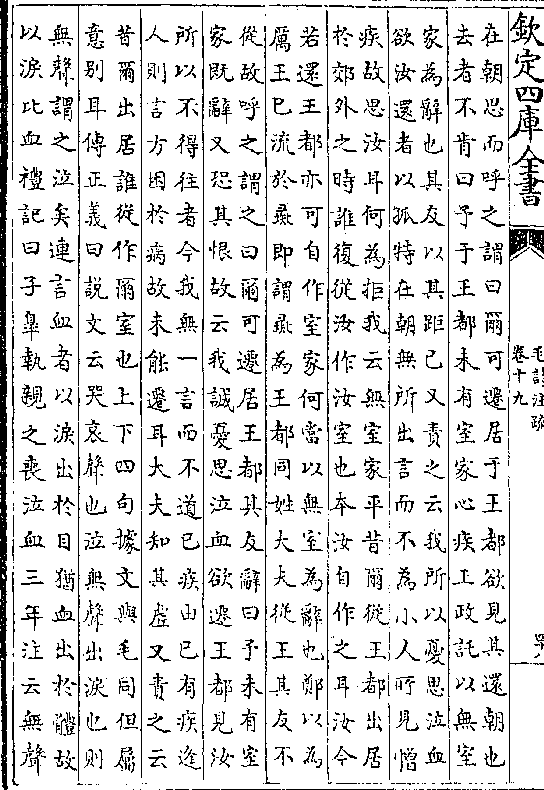 欽定四庫全書
毛詩注疏
卷十九
在朝思而呼之謂曰爾可遷居于王都欲見其還朝也
去者不肯曰予于王都未有室家心疾王政託以無室
家為辭也其友以其距已又責之云我所以憂思泣血
欲汝還者以孤特在朝無所出言而不為小人所見憎
疾故思汝耳何為拒我云無室家平昔爾從王都出居
於郊外之時誰復從汝作汝室也本汝自作之耳汝今
若還王都亦可自作室家何當以無室為辭也鄭以為
厲王已流於彘即謂彘為王都同姓大夫從王其友不
從故呼之謂之曰爾可遷居王都其友辭曰予未有室
家既辭又恐其恨故云我誠憂思泣血欲遷王都見汝
所以不得往者今我無一言而不道已疾由已有疾逢
人則言方困於病故未能遷耳大夫知其虛又責之云
昔爾出居誰從作爾室也上下四句據文與毛同但屬
意别耳傳正義曰說文云哭哀聲也泣無聲出淚也則
無聲謂之泣矣連言血者以淚出於目猶血出於體故
以淚比血禮記曰子臯執親之喪泣血三年注云無聲